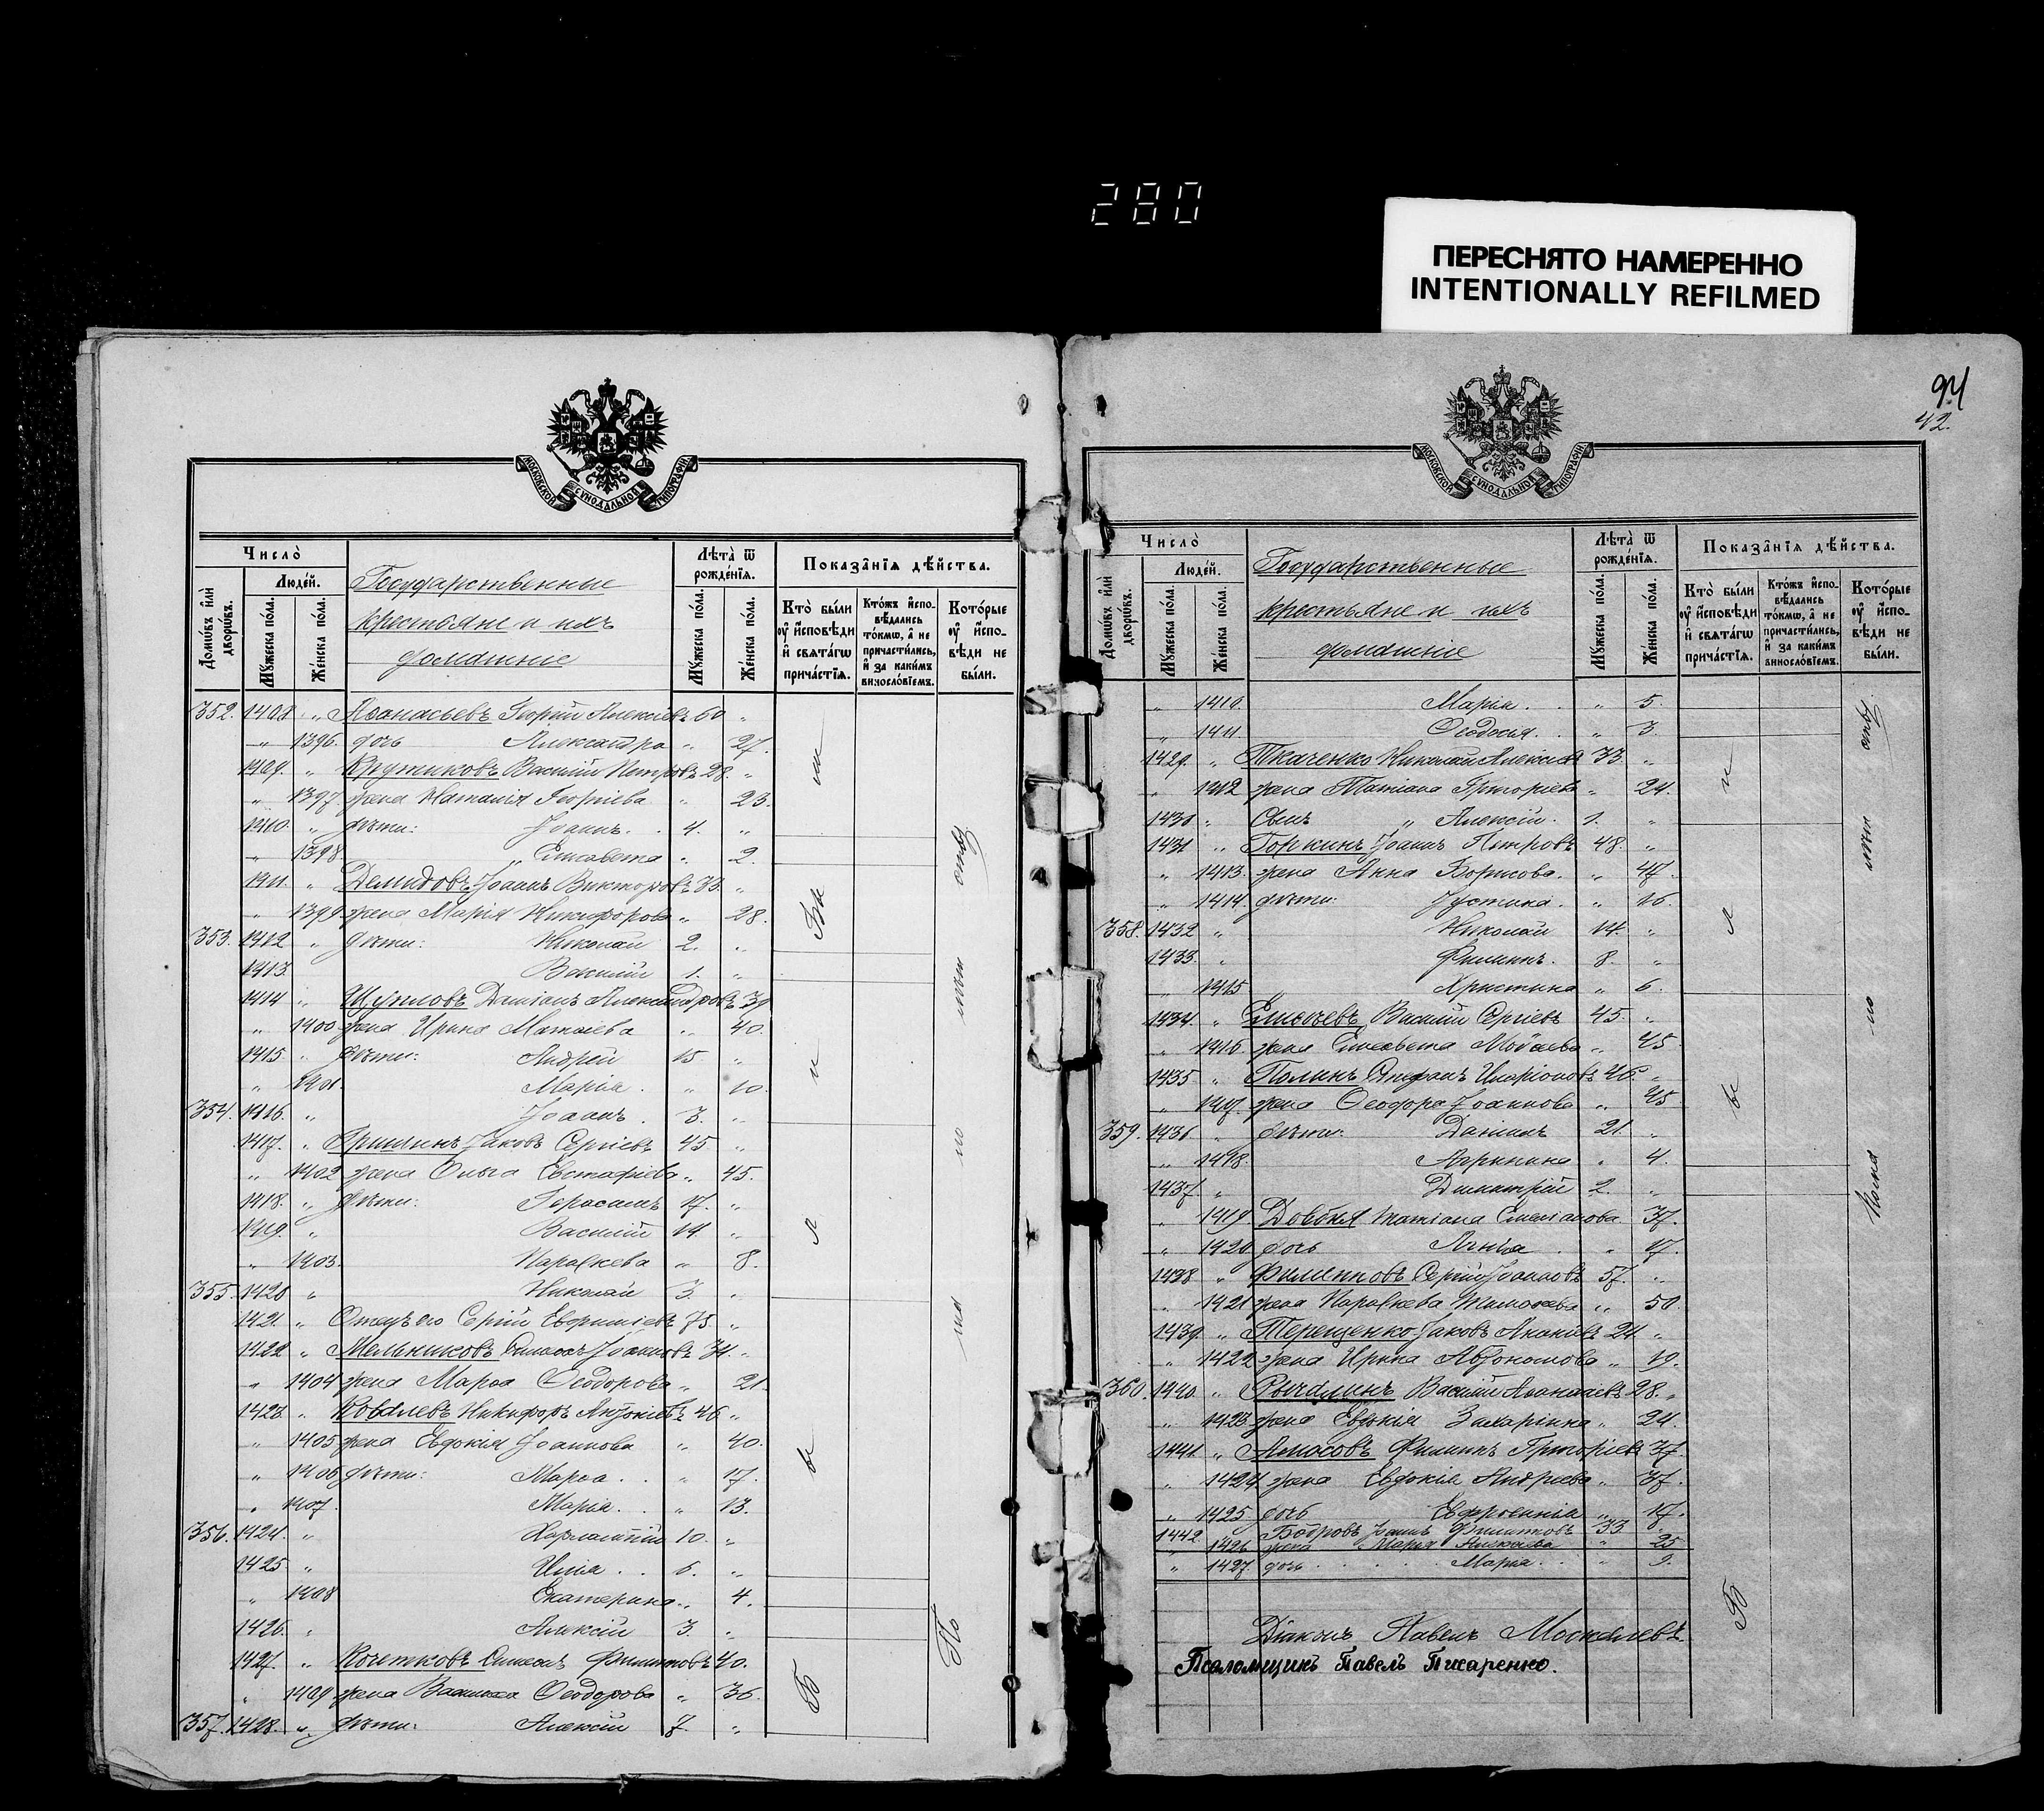 280
ПЕРЕСНЯТО НАМЕРЕННО
INTENTIONALLY REFILMED
94
42.
МОСКОВСКОЙ СѴНОДАЛЬНОЙ ТИПОГРАФІИ
Число̀
Лѣта̀ ѿ рожде́нїѧ.
Показа̑нїѧ дѣ́йства.
Домѡ́въ и҆лѝ дворѡ́въ.
Люде́й.
Мꙋ́жеска по́ла.
Же́нска по́ла.
Государственные
крестьяне и ихъ
домашніе
Мꙋ́жеска по́ла.
Же́нска по́ла.
Кто̀ бы́ли ᲂу҆ и҆сповѣ́ди и҆ свѧта́гѡ прича́стїѧ.
Кто́жъ и҆сповѣ́дались то́кмѡ, а҆ не причасти́лись, и҆ за каки́мъ виносло́вїемъ.
Кото́рые ᲂу҆ и҆сповѣ́ди не бы́ли.
352. 1408 „ Аѳанасьевъ Георгій Алексіевъ 60 „
„ 1396. дочь Александра „ 27.
1409. „ Крутиковъ Василій Петровъ 28. „
„ 1397 жена Наталія Георгіева „ 23.
1410. „ дѣти: Іоаннъ . . 4. „
„ 1398. „ Елисавета „ 2.
1411. „ Демидовъ Іоаннъ Викторовъ 33. „
„ 1399 жена Марія Никифорова „ 28.
353. 1412 „ дѣти: Николай 2. „
1413. Василій 1. „
1414 „ Даміанъ Александровъ 39
„ 1400 жена Ирина Матѳіева „ 40.
1415. „ дѣти: Андрей 15 „
„ 1401. Марія . „ 10.
354. 1416. „ Іоаннъ . 3. „
1417. „ Іаковъ Сергіевъ 45. „
„ 1402 жена Ольга Евстафіева „ 45.
1418. „ дѣти: Герасимъ 17. „
1419. „ Василій 14. „
„ 1403. Параскева „ 8.
355. 1420 „ Николай 3. „
1421. „ Отецъ его Сергій 75. „
1422 „ Мельниковъ Симеонъ Іоанновъ 34. „
„ 1404 жена Марѳа Ѳеодорова „ 21.
1423. „ Ковалевъ Никифоръ Антоніевъ 46 „
„ 1405 жена Евдокія Іоаннова „ 40.
„ 1406 дѣти: Марѳа . . „ 17.
„ 1407. Марія . . „ 13.
356. 1424. „ Харлампій 10. „
1425. „ Илія . . 6. „
„ 1408 Екатерина „ 4.
1426. „ Алексій 3. „
1427. „ Кочетковъ Симеонъ Филипповъ 40.
„ 1409 жена Василиса Ѳеодорова „ 36.
357. 1428. „ дѣти: Алексій 7. „
Число̀
Лѣта̀ ѿ рожде́нїѧ.
Показа̑нїѧ дѣ́йства.
Домѡ́въ и҆лѝ дворѡ́въ.
Люде́й.
Мꙋ́жеска по́ла.
Же́нска по́ла.
Государственные
крестьяне и ихъ
домашніе
Мꙋ́жеска по́ла.
Же́нска по́ла.
Кто̀ бы́ли ᲂу҆ и҆сповѣ́ди и҆ свѧта́гѡ прича́стїѧ.
Кто́жъ и҆сповѣ́дались то́кмѡ, а҆ не причасти́лись, и҆ за каки́мъ виносло́вїемъ.
Кото́рые ᲂу҆ и҆сповѣ́ди не бы́ли.
„ 1410. Марія . . „ 5.
„ 1411 Ѳеодосія . . „ 3.
1429. „ Ткаченко Николай Алексіевъ 33. „
„ 1412 жена Татіана Григоріева „ 24.
1430 „ Сынъ „ Алексій . 1. „
1431 „ Горкинъ Іоаннъ Петровъ 48. „
„ 1413. жена Анна Борисова . „ 47.
„ 1414. дѣти: Іустина . „ 16.
358. 1432 „ Николай 14. „
1433. „ Филиппъ . 8. „
„ 1415 „ Христина „ 6.
1434. „ Елисеевъ Василій Сергіевъ 45. „
„ 1416. жена Елисавета Моисеева „ 45
1435 „ Полинъ Стефанъ Иларіоновъ 46. „
„ 1417. жена Ѳеодора Іоаннова „ 45
359. 1436 „ дѣти: Даніилъ 21. „
„ 1418. Агрипина „ 4.
1437. „ Димитрій 2. „
„ 1419 Довбня Татіана Емеліанова 37.
„ 1420. дочь Агнія . „ 17.
1438 „ Филиповъ Сергій Іоанновъ 57. „
„ 1421 жена Параскева Тимоѳеева „ 50.
1439. „ Терещенко Іаковъ Ананіевъ 24 „
„ 1422 жена Ирина Автономова „ 19.
360. 1440. „ Василій Аѳанасіевъ 28. „
„ 1423 жена Евдокія Захаріина „ 24.
1441. „ Филиппъ Григоріевъ 37
„ 1424 жена Евдокія Андреева „ 37.
„ 1425 дочь Евфросинія „ 17.
1442 „ Бобровъ Іоаннъ Филиповъ 33 „
„ 1426 жена Марія Алексіева „ 25
„ 1427. дочь . . . . . Марія . . „ 9.
Діаконъ Павелъ Москалевъ
Псаломщикъ Павелъ Писаренко.